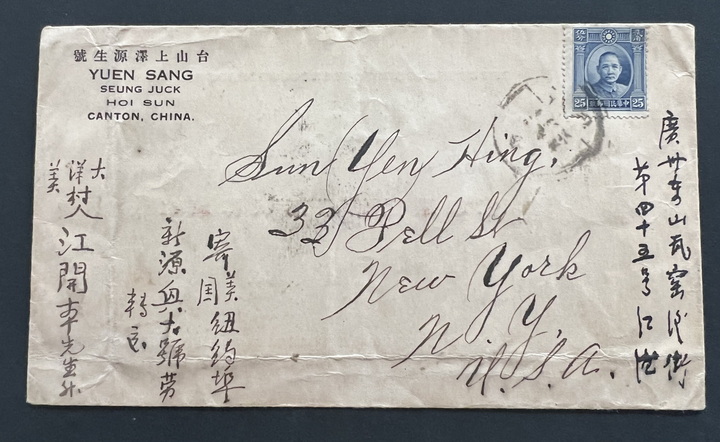 台山上澤源生號
YUEN SANG
SEUNG JUCK
HOI SUN
CANTON, CHINA.
25 中華民國郵政 25
Sun Yen Hing.
33 Pell St
New York
N. Y.
U. S. A.
廣州東山瓦窑後街
第四十五号江
寄美国紐約埠
新源興大號劳
轉交
江開 先生